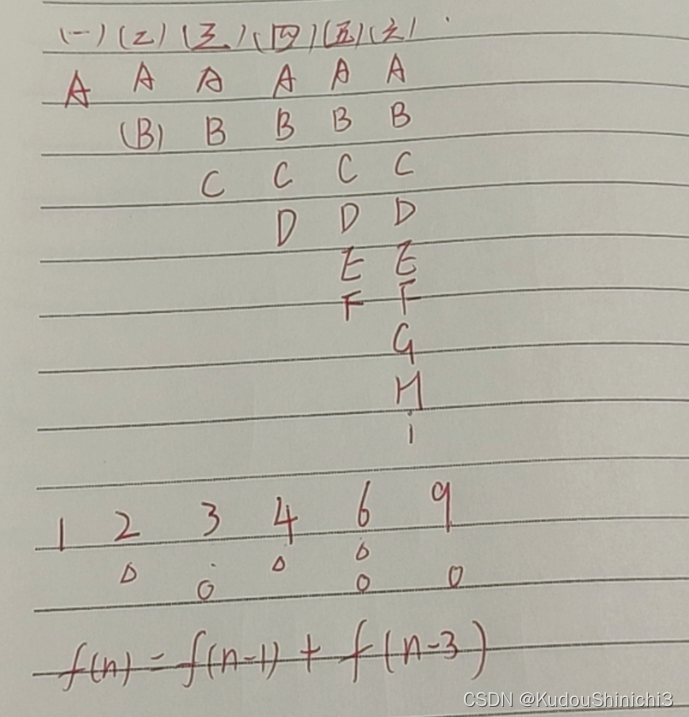 (一) (二) (三) (四) (五) (六)
A A A A A A
(B) B B B B
C C C C
D D D
E E
F F
G
H
i
1 2 3 4 6 9
f(n) = f(n-1) + f(n-3)
CSDN @KudouShinichi3